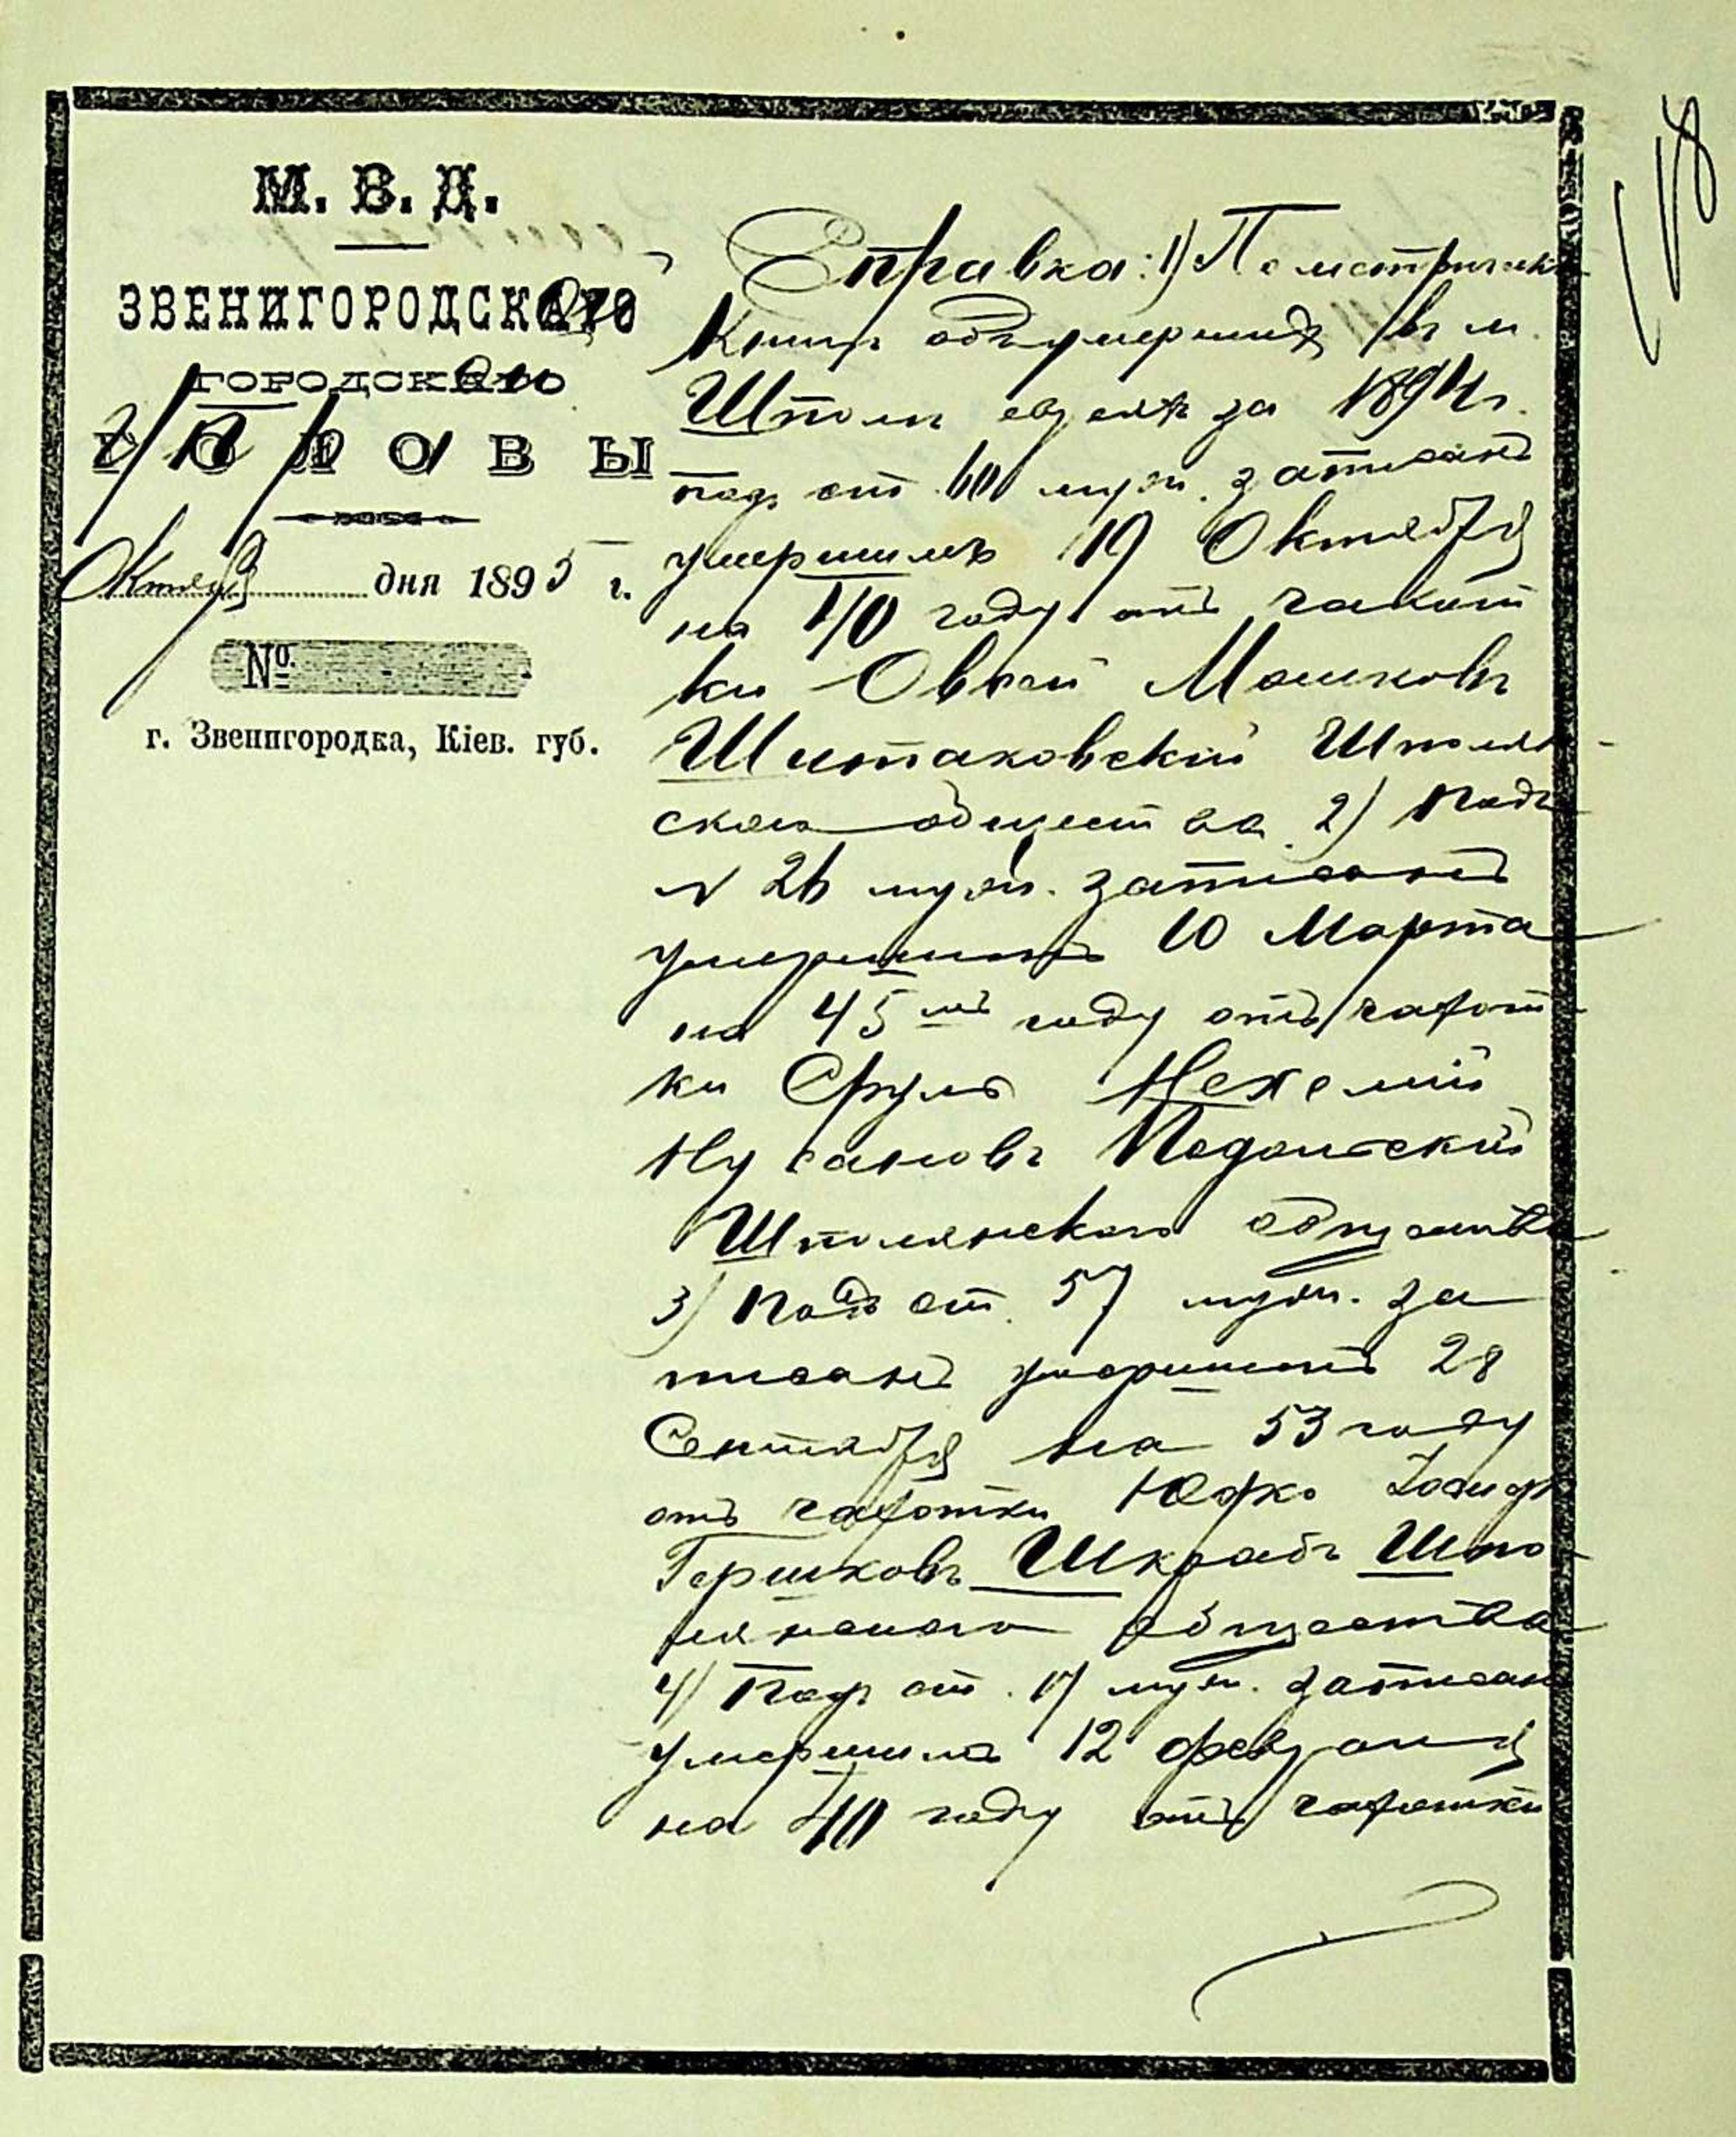 М. В. Д.
ЗВЕНИГОРОДСКАГО
ГОРОДСКАГО
дня 1895 г.
№
г. Звенигородка, Кіев. губ.
118
Справка: 1) По метрическ
Книгѣ объ умершихъ въ м.
Шполѣ евреяхъ за 1894 г.
подъ ст. 60 муж. записанъ
умершимъ 19 Октября
на 40 году отъ чахот
ки Овсей Мошковъ
Шполян
скаго общества. 2) Подъ
№ 26 муж. записанъ
умершимъ 10 Марта
на 45 мъ году отъ чахот
ки Сруль Нехемій
Нусановъ Подольскій
Шполянскаго общества
3) Подъ ст. 57 муж. за
писанъ умершимъ 28
Сентября на 53 году
отъ чахотки
Гершковъ Шкрабъ Шпо
лянскаго общества
4) Подъ ст. 17 муж. записан
умершимъ 12 февраля
на 40 году отъ чахотки